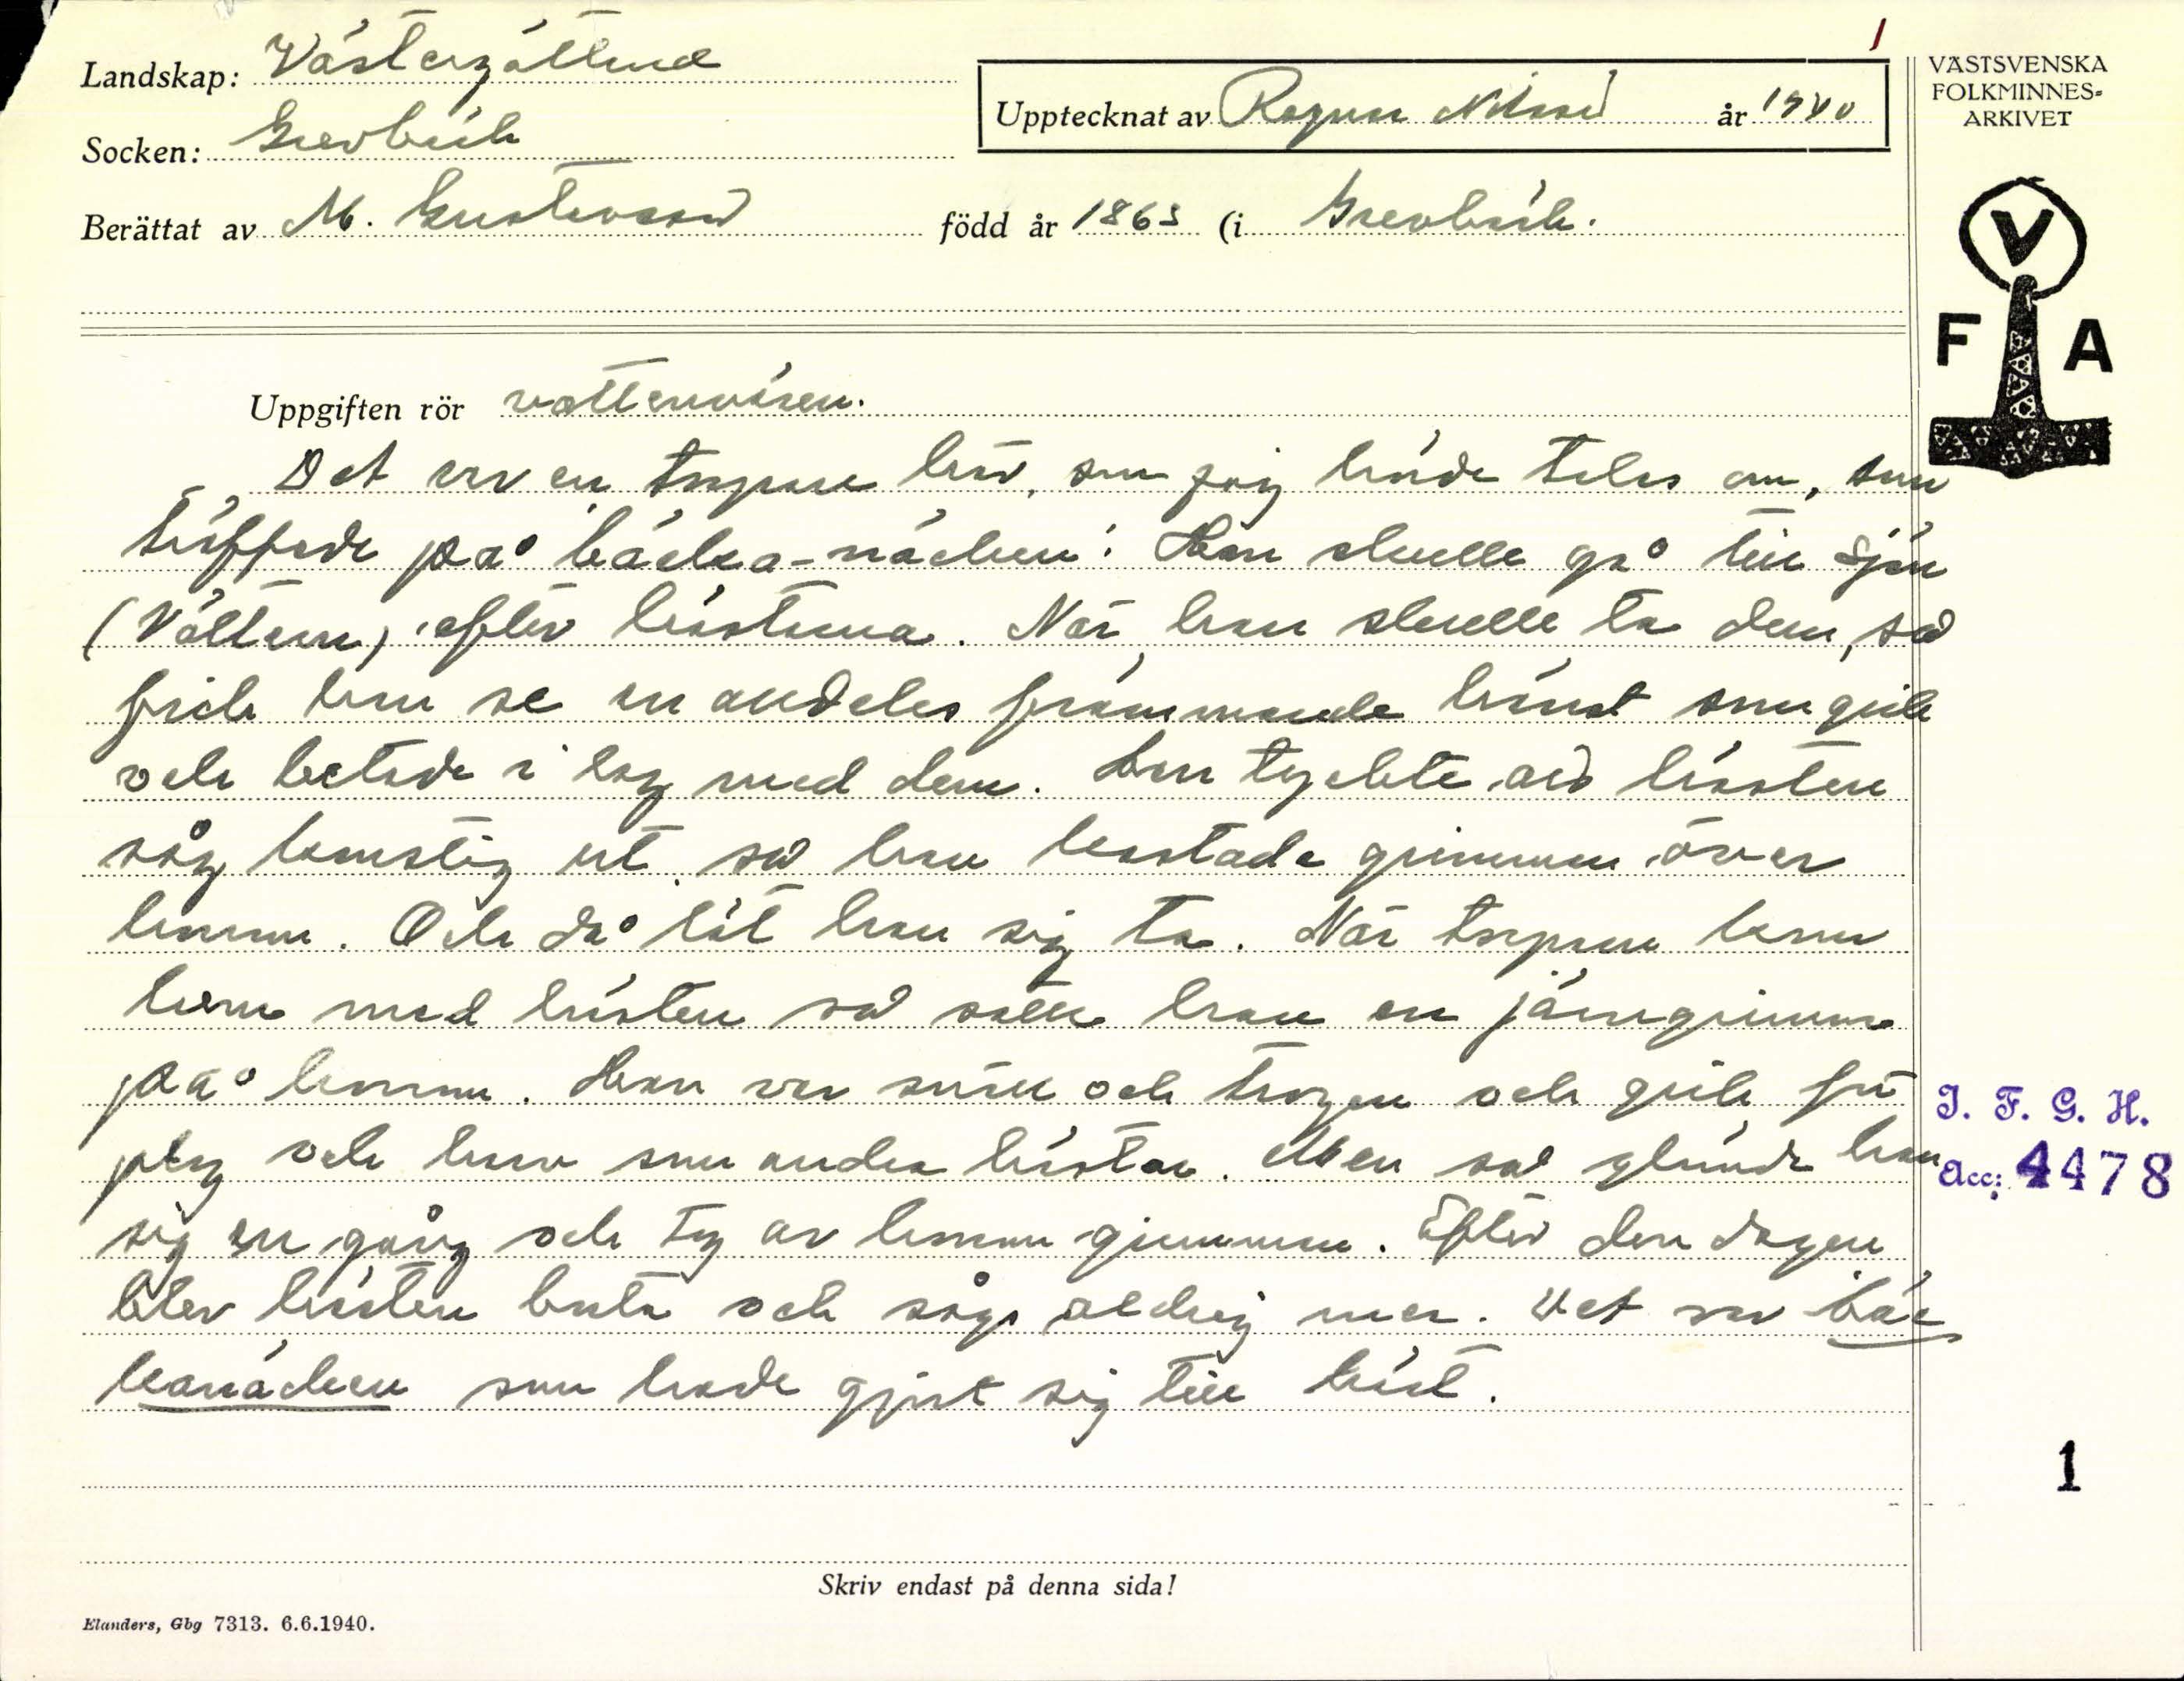 1
Landskap: Västergötland
Socken: Grevbäck
Upptecknat av Ragnar Nilsson år 1940
Berättat av M. Gustavsson född år 1863 (i Grevbäck.
VÄSTSVENSKA
FOLKMINNES-
ARKIVET
V
F A
Uppgiften rör vattenväsen.
Det var en torpare här, som jag hörde talas om, som
träffade på bäcka-näcken: Han skulle gå till sjön
(Vättern) efter hästarna. När han skulle ta dem, så
fick han se en alldeles främmande häst som gick
och betade i lag med dem. Han tyckte att hästen
såg konstig ut så han kastade grimman över
honom. Och då lät han sig ta. När torparen kom
hem med hästen så satte han en järngrimma
på honom. Han var snäll och trogen och gick för
plog och harv som andra hästar. Men så glömde han
sig en gång och tog av honom grimman. Efter den dagen
blev hästen borta och sågs aldrig mer. Det var bäc
kanäcken som hade gjort sig till häst.
I. F. G. H.
Acc: 4478
1
Skriv endast på denna sida!
Elanders, Gbg 7313. 6.6.1940.